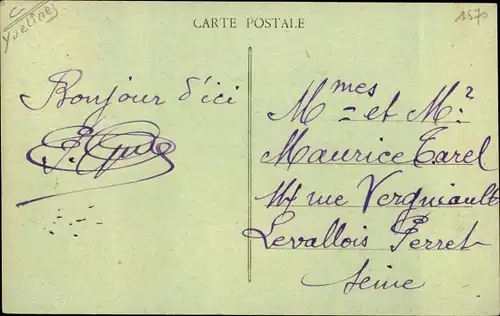 C
Yvelines
CARTE POSTALE
1570
Bonjour d'ici
Mmes = et Mr
Maurice Tarel
rue Vergniault
Levallois Perret
Seine